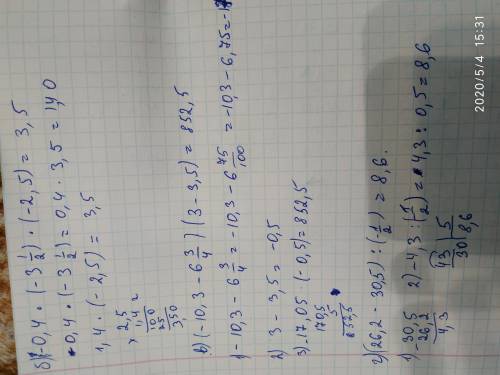 б) -0,4 · (-3 1/2) · (-2,5) = 3,5
-0,4 · (-3 1/2) = 0,4 · 3,5 = 1,40
1,4 · (-2,5) = 3,5
× 2,5
1,4 =
100
25
3,50
в) (-10,3 - 6 3/4)(3 - 3,5) = 852,5
1) -10,3 - 6 3/4 = -10,3 - 6 75/100 = -10,3 - 6,75 = -17
2) 3 - 3,5 = -0,5
3) -17,05 · (-0,5) = 852,5
1705
5
852,5
г) (26,2 - 30,5) : (-1/2) = 8,6.
1) -30,5
26,2
4,3
2) -4,3 : (1/2) = 4,3 : 0,5 = 8,6
43 | 5
30 8,6
2020/5/4 15:31